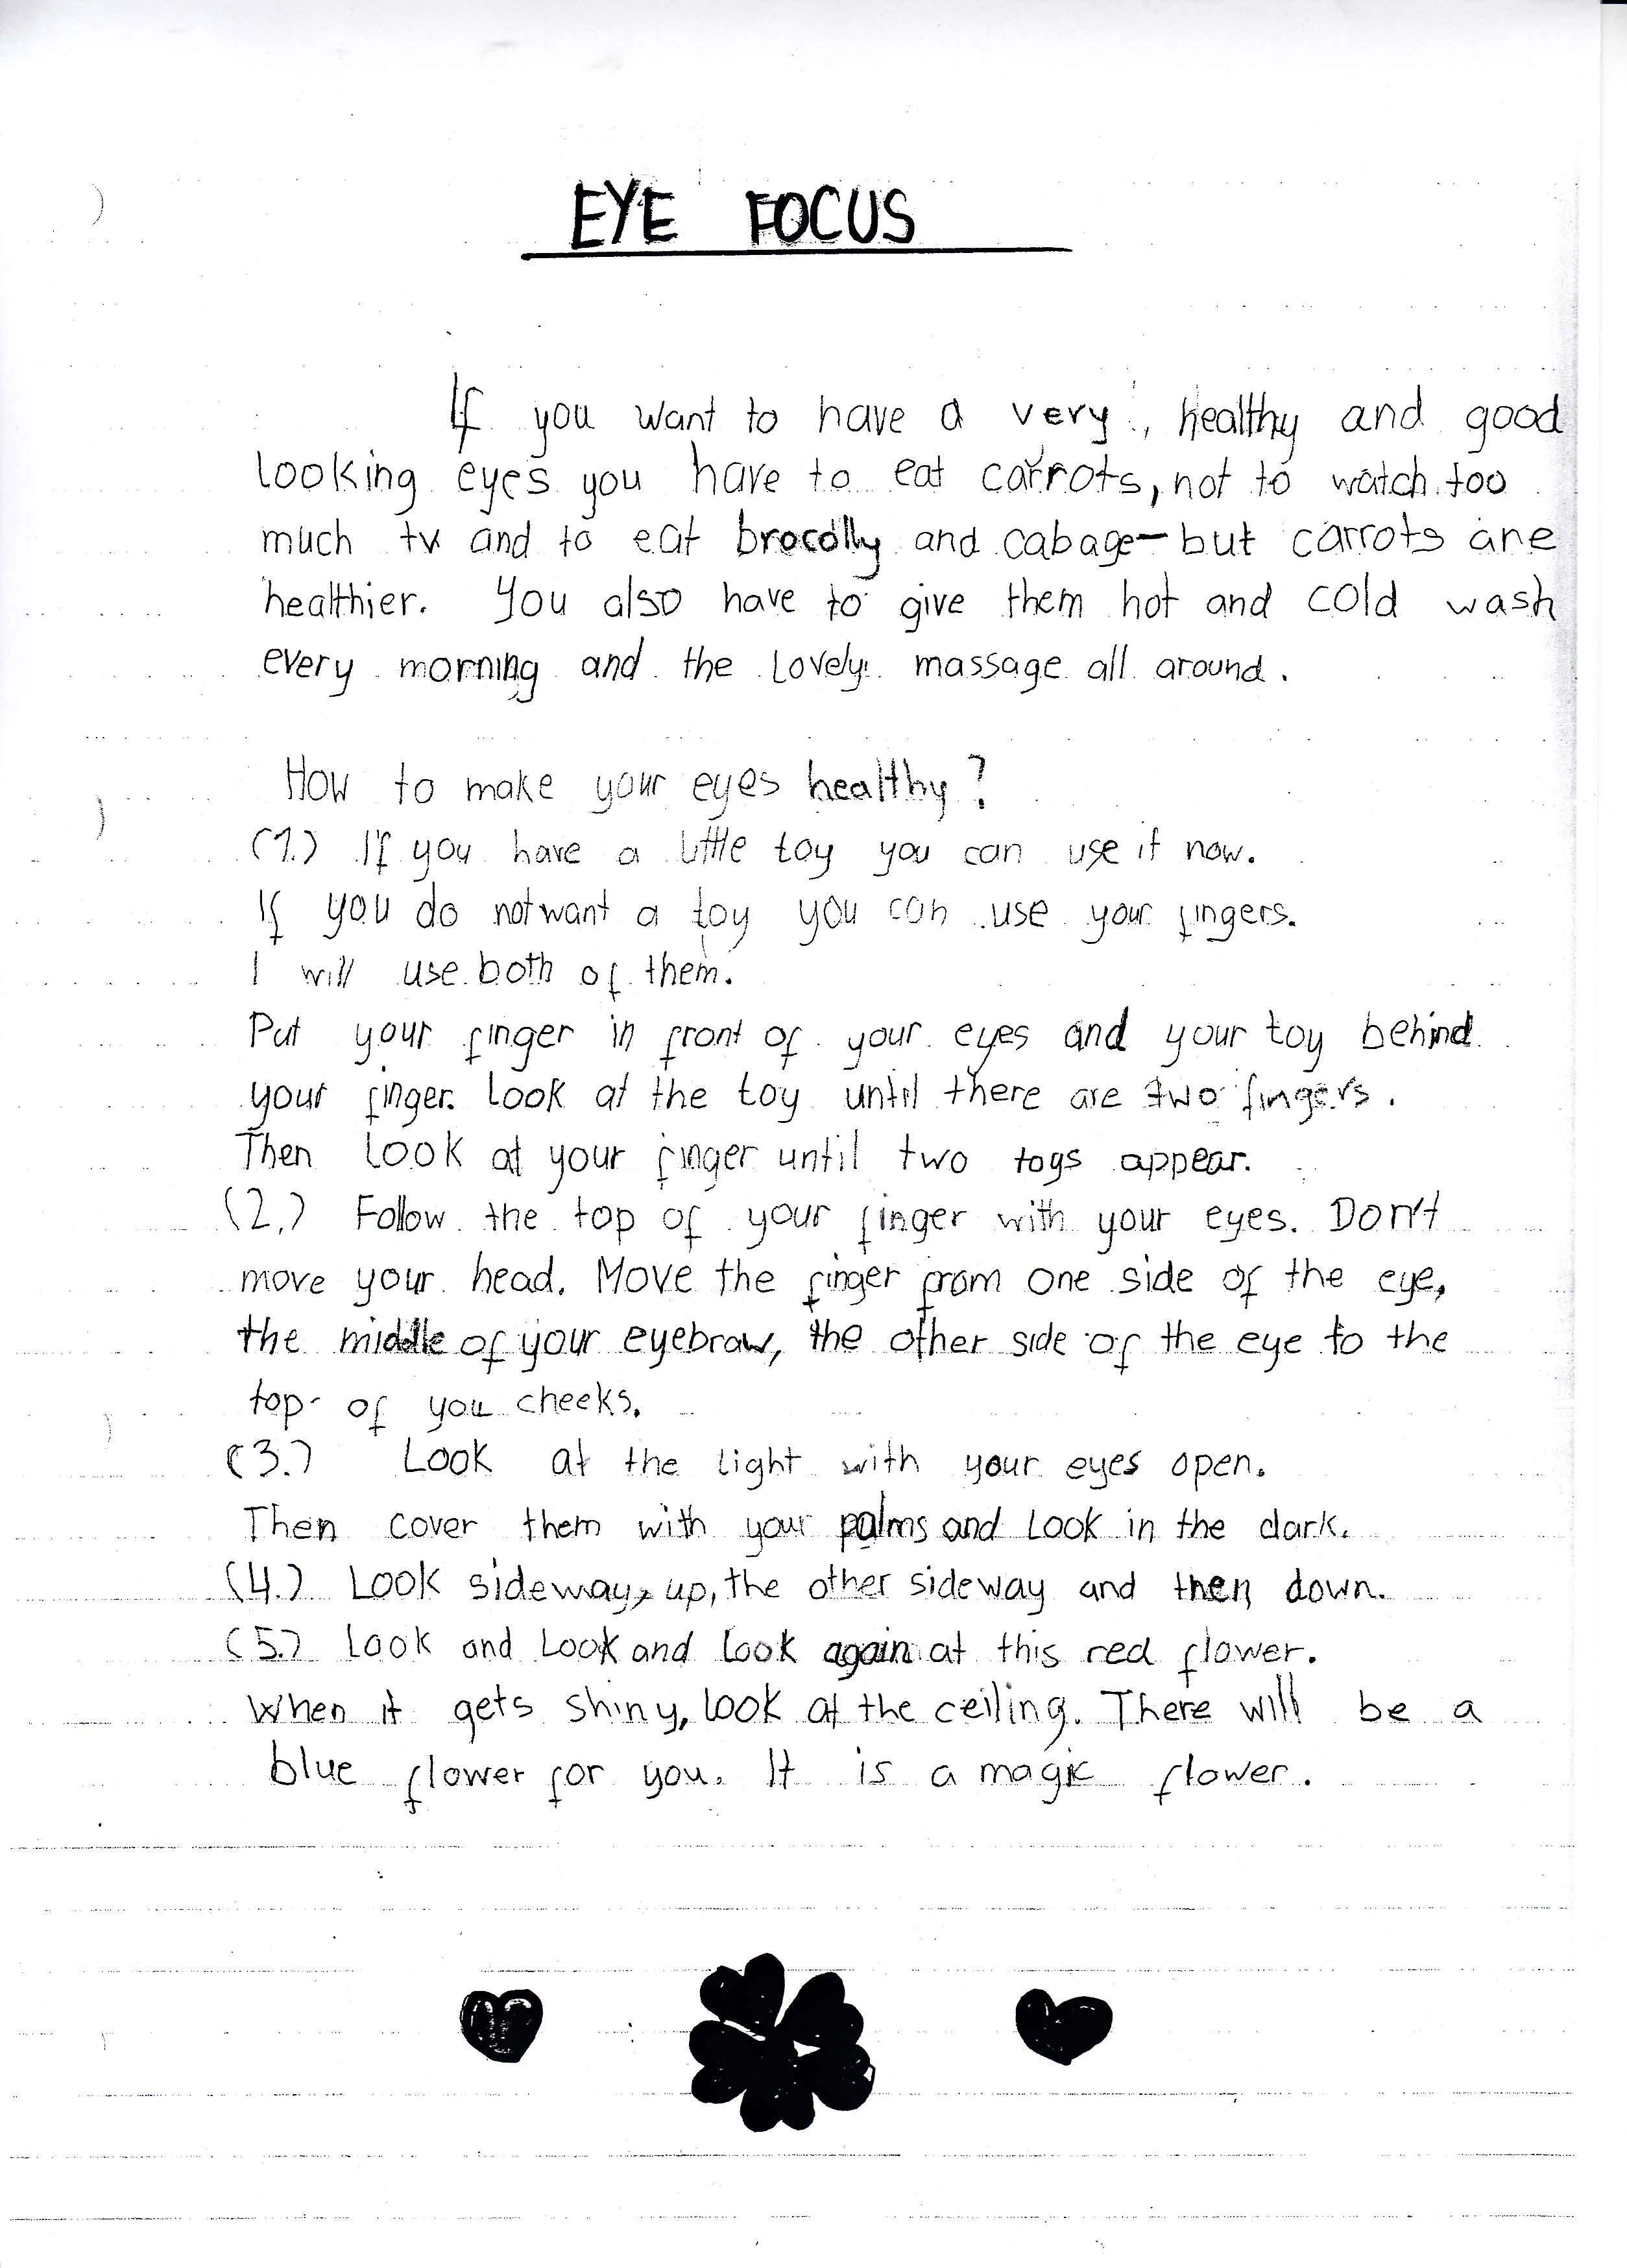 EYE FOCUS
If you want to have a very, healthy and good
looking eyes you have to eat carrots, not to watch too
much tv and to eat brocolly and cabage - but carrots are
healthier. You also have to give them hot and cold wash
every morning and the lovely massage all around.
How to make your eyes healthy?
(1.) If you have a little toy you can use it now.
If you do not want a toy you can use your fingers.
I will use both of them.
Put your finger in front of your eyes and your toy behind
your finger. Look at the toy until there are two fingers.
Then look at your finger until two toys appear.
(2.) Follow the top of your finger with your eyes. Don't
move your head. Move the finger from one side of the eye,
the middle of your eyebraw, the other side of the eye to the
top of you cheeks.
(3.) Look at the light with your eyes open.
Then cover them with your palms and look in the dark.
(4.) Look sideway, up, the other sideway and then down.
(5.) Look and look and look again at this red flower.
When it gets shiny, look at the ceiling. There will be a
blue flower for you. It is a magic flower.